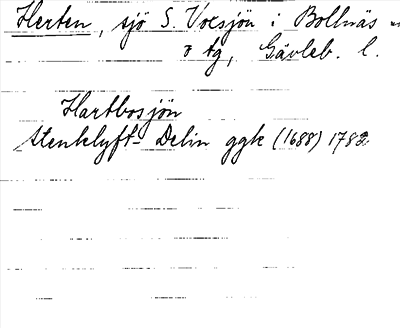 Herten, sjö S. Voxsjön i Bollnäs
o tg, Gävleb. l.
Hartbosjön
Stenklyft- Delin ggk (1688) 1782